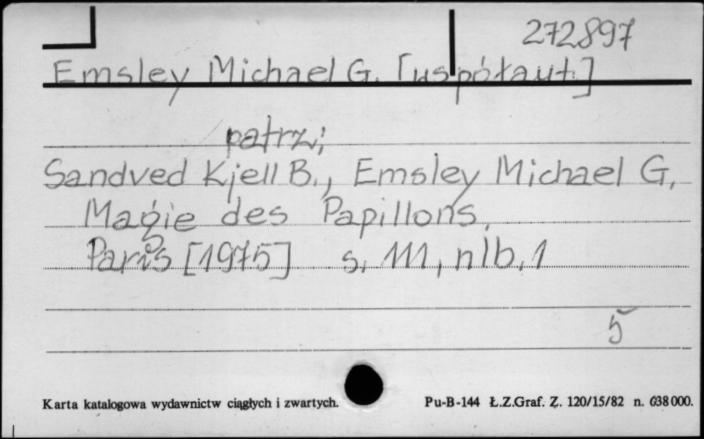 272897
Emsley Michael G. [współaut.]
patrz;
Sandved Kjell B., Emsley Michael G,
Magie des Papillons,
Paris [1975] s. 111, nlb. 1
5
Karta katalogowa wydawnictw ciągłych i zwartych.
Pu-B-144 Ł.Z.Graf. Z. 120/15/82 n. 638 000.